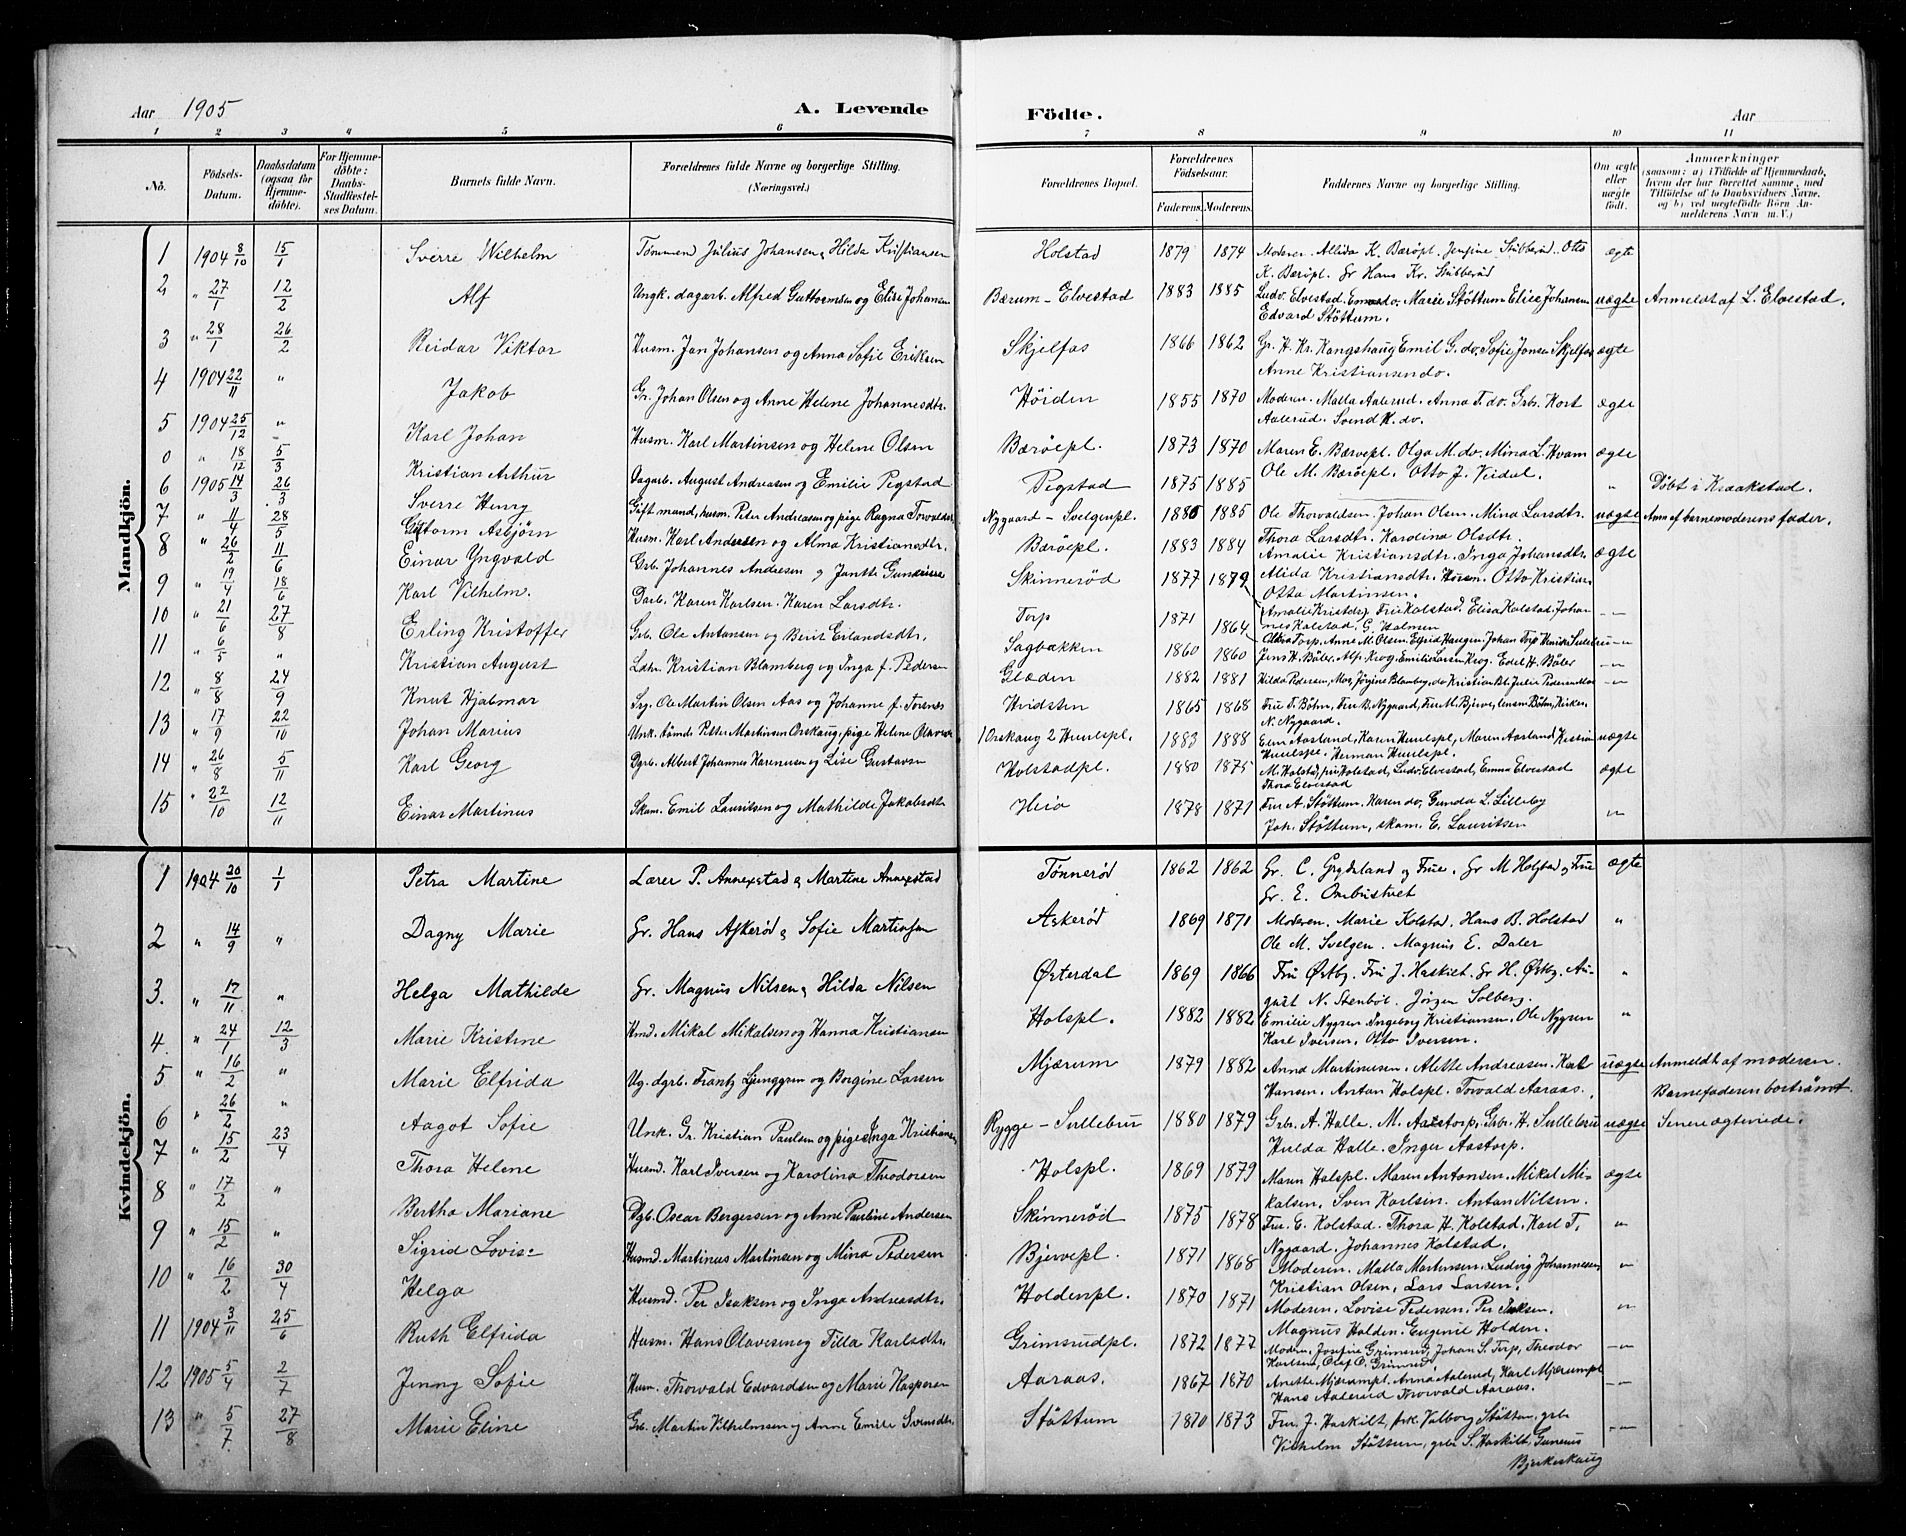 Aar 1905 A. Levende Födte. Aar
1 2 3 4 5 6 7 8 9 10 11
No. Födsels-Datum. Daabsdatum (ogsaa for Hjemme-döbte). For Hjemme-döbte: Daabs-Stadfæstel-ses Datum. Barnets fulde Navn. Forældrenes fulde Navne og borgerlige Stilling. (Næringsvei.) Forældrenes Bopæl. Forældrenes Födselsaar. Faderens. Moderens. Faddernes Navne og borgerlige Stilling. Om ægte eller uægte födt. Anmærkninger (saasom: a) i Tilfælde af Hjemmedaab, hvem der har forrettet samme, med Tilföielse af to Daabsvidners Navne, og b) ved uægtefödte Börn An-melderens Navn m. V.)
Mandkjön.
1 1904 8/10 15/1 Sverre Wilhelm Tömmen Julius Johansen & Hilda Kristiansen Holstad 1879 1874 Moderen. Allida K. Bæröpl. Jensine Stubberud. Otto ægte
K. Bæröpl. Gr Hans Kr. Stubberöd
2 " 27/1 12/2 Alf Ungk. dagarb. Alfred Guttormsen og Elise Johansen Bærum - Elvestad 1883 1885 Ludv. Elvestad Emma do. Marie Støttum Elise Johansen uægte Anmeldt af L. Elvestad.
Edvard Støttum.
3 " 28/1 26/2 Reidar Viktor Husm. Jan Johansen og Anna Sofie Eriksen Skjelfos 1866 1862 Gr. H. Kr. Kangshaug Emil G. do. Sofie Jonsen Skjelfos ægte
Anne Kristiansen do.
4 1904 22/11 " Jakob Gr. Johan Olsen og Anne Helene Johannesdtr. Höiden 1855 1870 Moderen. Malla Aalerud. Anna T. do. Grb. Kort ægte
Aalerud. Svend K. do.
5 1904 25/12 " Karl Johan Husm. Karl Martinsen og Helene Olsen Bæröepl. 1873 1870 Maren E. Bærøepl. Olga M. do. Mina L. Hvam ægte
Ole M. Bæröepl. Otto J. Veidal.
0 " 18/12 5/3 Kristian Arthur Dagarb. August Andreasen og Emilie Pegstad Pegstad 1875 1885 " Döbt i Kraakstad.
6 1905 14/3 26/3 Sverre Henry Gift mand, husm. Peter Andreasen og pige Ragna Torvaldsen Nygaard - Svelgenpl. 1885 1885 Ole Thorvaldsen. Johan Olsen. Mina Larsdtr. uægte Anm af barnemoderens fader.
Thora Larsdtr. Karolina Olsdtr.
7 " 11/4 28/5 Guttorm Asbjörn Husm. Karl Andersen og Alma Kristiansdtr. Bæröepl. 1883 1884 Amalie Kristiansdtr. Inga Johansdtr. ægte
8 " 26/2 11/6 Einar Yngvald Grb. Johannes Andresen og Jantte Gundersen Skinneröd 1877 1879 Alida Kristiansdtr. Husm. Otto Kristian
Otto Martinsen.
9 " 19/4 18/6 Karl Vilhelm. Darb. Karen Karlsen. Karen Larsdtr. Torp 1871 1864 Amalie Kristofs Fru Kolstad. Elisa Kolstad. Johan
nes Kolstad. G. Holmen
10 " 21/6 27/8 Erling Kristoffer Grb. Ole Antonsen og Berit Erlandsdtr. Sagbakken 1860 1860 Torp. Anne M. Olsen. Elfrid Haugen. Johan Torp
11 " 6/5 " Kristian August Ldhn. Kristian Blamberg og Inga f. Pedersen Glæden 1882 1881 Jens H. Böler. Alf Krog. Emilie Larsen Krog. Edel H. Böler
12 " 8/8 24/9 Knut Hjalmar Srg. Ole Martin Olsen Aas og Johanne f. Torsnes Hvidsten 1865 1868 Hilda Pedersen, Mor, Jörgine Blamberg, do Kristian Bl. Julie Pedersen
13 " 17/9 22/10 Johan Marius Unk. tömde Petter Martinsen Orskaug, pige Helene Olavesen 1 Orskaug 2 Huulspl. 1883 1888 Fru T. Böhn, Fru B. Nygaard, Fru M. Bjerve, Jensen Böhn, Kirker
N. Nygaard.
14 " 26/8 5/11 Karl Georg Dgrb. Albert Johannes Karenusen og Lise Gustavsen Holstadpl. 1880 1875 Elen Aasland, Karen Huulspl, Maren Aasland uægte
Huulspl. Herman Huulspl.
15 " 22/10 12/11 Einar Martinus Skam. Emil Lauritsen og Mathilde Jakobsdtr Heia 1878 1871 M. Holstad, fru Holstad, Ludv. Elvestad, Emma Elvestad ægte
Thora Elvestad
Fru A. Støttum. Karen do, Gunda L. Lilleby
Joh. Støttum, skam. E. Lauritsen
Kvindekjön.
1 1904 20/10 1/1 Petra Martine Lærer P. Annexstad & Martine Annexstad Tönneröd 1862 1862 Gr. C. Grydeland og Frue. Gr M Holstad og Frue ægte
Gr. E. Ombustvet
2 " 14/9 " Dagny Marie Gr. Hans Askeröd & Sofie Martinsen Askeröd 1869 1871 Moderen. Marie Kolstad. Hans B. Holstad "
Ole M. Svelgen. Magnus E. Daler
3. " 17/11 " Helga Mathilde Gr. Magnus Nilsen & Hilda Nilsen Østerdal 1869 1866 Fru Østby. Fru J. Haskilt. Gr H. Østby. Au- "
gust N. Stenböl. Jörgen Solberg.
4. " 24/1 12/3 Marie Kristine Hmd. Mikal Mikalsen og Hanna Kristiansen Holspl. 1882 1882 Emilie Nygren Ingeborg Kristiansen. Ole Nygren "
Karl Iversen, Otto Iversen.
5 " 16/2 " Marie Elfrida Ug. dgrb. Frantz Ljunggren og Borgine Larsen Mjærum 1879 1882 Anna Martinusen. Alette Andreasen. Karl uægte Anmeldt af moderen.
Hansen. Antan Holspl. Torvald Aaraas. Barnefaderen bortrömt.
6 " 26/2 " Aagot Sofie Unk. Gr. Kristian Paulsen og pige Inga Kristiansen Rygge - Sullebru 1880 1879 Grb. A. Halle. M. Aastorp. Grb. H. Sullebru uægte Senere ægteviede.
Hulda Halle. Inger Aastorp.
7 " 15/2 23/4 Thora Helene Husmd. Karl Iversen og Karolina Theodorsen Holspl. 1869 1879 Maren Holspl. Maren Antonsen. Mikal Mi- ægte
kalsen. Sven Karlsen. Antan Nilsen.
8 " 17/2 " Bertha Mariane Dgb. Oscar Bergersen og Anne Pauline Andersen Skinneröd 1875 1878 Fru. E. Kolstad. Thora H. Kolstad. Karl T. "
Nygaard. Johannes Kolstad.
9 " 15/2 " Sigrid Lovise Husmd. Martinus Martinsen og Mina Pedersen Bjervepl. 1871 1868 Moderen. Malla Martensen. Ludvig Johannesen "
Kristian Olsen. Lars Larsen.
10 " 16/2 30/4 Helga Husmd. Per Isaksen og Inga Andreasdtr. Holdenpl. 1870 1871 Moderen. Lovise Pedersen. Per Isaksen. "
Magnus Holden. Eugenie Holden.
11 1904 3/11 25/6 Ruth Elfrida Husm. Hans Olavesen og Tilla Karlsdtr. Grimsrudpl. 1872 1877 Moderen. Josefia Grimsrud, Johan S. Torp, Theodor
Karlsen, Olaf O. Grimsrud.
12 1905 5/4 2/7 Jenny Sofie Husm. Thorvald Edvardsen og Marie Kaspersen Aaraas. 1867 1870 Anette Mjærumpl. Anna Aalerud, Karl Mjærumpl
Hans Aalerud Thorvald Aaraas.
13 " 5/7 27/8 Marie Eline Grb. Martin Vilhelmsen og Anne Emilie Svendsdtr. Støttum 1870 1873 Fru J. Haskilt, frk. Valborg Støttum, grbr
Vilhelm Støttum, grbr S. Haskilt, Gunerius
Bjerkeskaug